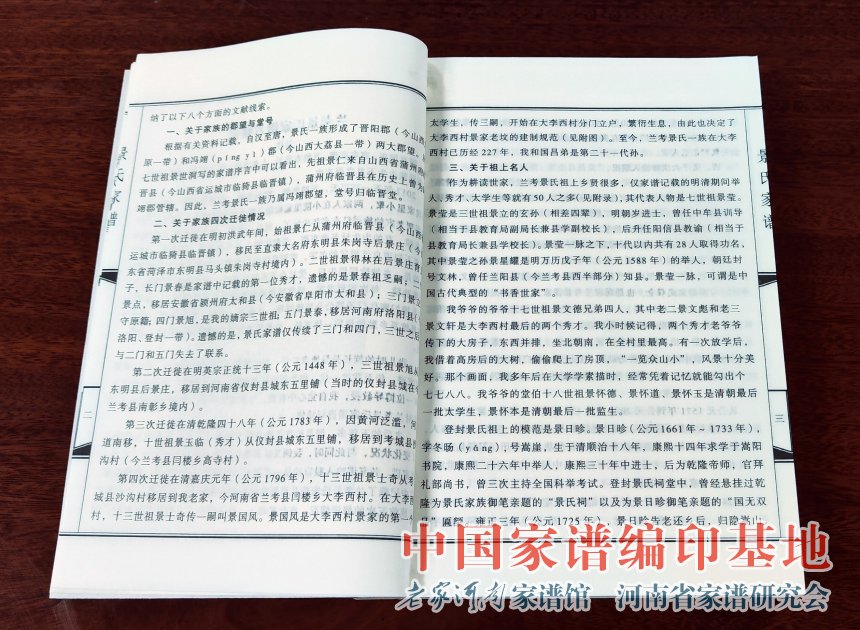 纳了以下八个方面的文献线索。
一、关于家族的郡望与堂号
根据有关资料记载，自汉至唐，景氏一族形成了晋阳郡（今山西
原一带）和冯翊（píng yì）郡（今山西大荔县一带）两大郡望。
七世祖景世洞写的家谱序言中可以看出，先祖景仁来自山西省蒲州府
晋县（今山西省运城市临猗县临晋镇），蒲州府临晋县在历史上曾为
翊郡管辖。因此，兰考景氏一族乃属冯翊郡望，堂号归临晋堂。
二、关于家族四次迁徙情况
第一次迁徙在明初洪武年间，始祖景仁从蒲州府临晋县（今山西
运城市临猗县临晋镇），移民至直隶大名府东明县朱岗寺后景庄（今
东省菏泽市东明县马头镇朱岗寺村境内）。二世祖景得林在后景庄有
子，长门景春是家谱中记载的第一位秀才，遗憾的是景春祖乏嗣；二
景点，移居安徽省颍州府太和县（今安徽省阜阳市太和县）；三门景
守原籍；四门景旭，是我的嫡宗三世祖；五门景泰，移居河南府洛阳县（
洛阳、登封一带）。遗憾的是，景氏家谱仅传续了三门和四门，三世之后
与二门和五门失去了联系。
第二次迁徙在明英宗正统十三年（公元1448年），三世祖景旭从
东明县后景庄，移居到河南省仪封县城东五里铺（当时的仪封县城在今
兰考县南彰乡境内）。
第三次迁徙在清乾隆四十八年（公元1783年），因黄河泛滥，何
道南移，十世祖景玉临（秀才）从仪封县城东五里铺，移居到考城县
沟村（今兰考县闫楼乡高寺村）。
第四次迁徙在清嘉庆元年（公元1796年），十三世祖景士奇从考
城县沙沟村移居到我老家，今河南省兰考县闫楼乡大李西村。在大李西
村，十三世祖景士奇传一嗣叫景国凤。景国凤是大李西村景家的第一
太学生，传三嗣，开始在大李西村分门立户，繁衍生息，由此也决定了
大李西村景家老坟的建制规范（见附图）。至今，兰考景氏一族在大李
西村已历经227年，我和国昌弟是第二十一代孙。
三、关于祖上名人
作为耕读世家，兰考景氏祖上乡贤很多，仅家谱记载的明清期间举
人、秀才、太学生等就有50人之多（见附录），其代表人物是七世祖景莹。
景莹是三世祖景立的玄孙（相差四辈），明朝岁进士，曾任中牟县训导
（相当于县教育局副局长兼县学副校长），后升任阳信县教谕（相当于
县教育局局长兼县学校长）。景莹一脉之下，十代以内共有28人取得功名，
其中景莹之孙景星耀是明万历戊子年（公元1588年）的举人，朝廷封
号文林，曾任兰阳县（今兰考县西半部分）知县。景莹一脉，可谓是中
国古代典型的“书香世家”。
我爷爷的爷爷十七世祖景文德兄弟四人，其中老二景文彪和老三
景文轩是大李西村最后的两个秀才。我小时候记得，两个秀才老爷爷
传下的大房子，东西并排，坐北朝南，在全村里最高。有一次放学后，
我借着高房后的大树，偷偷爬上了房顶，“一览众山小”，风景十分美
好。那个画面，我多年后在大学学素描时，经常凭着记忆就能勾出个
七七八八。我爷爷的堂伯十八世祖景怀德、景怀道、景怀玉是清朝最后
一批太学生，景怀本是清朝最后一批监生。
登封景氏祖上的模范是景日昣。景日昣（公元1661年～1733年），
学冬旸（yáng），号嵩崖，生于清顺治十八年，康熙十四年求学于嵩阳
书院，康熙二十六年中举人，康熙三十年中进士，后为乾隆帝师，官拜
礼部尚书，曾三次主持全国科举考试。登封景氏祠堂中，曾经悬挂过乾
隆为景氏家族御笔亲题的“景氏祠”以及为景日昣御笔亲题的“国无双
品”匾额。雍正三年（公元1725年），景日昣告老还乡后，归隐嵩山
景氏家谱
二
景氏家谱
三
中国家谱编印基地
老家河南家谱馆 河南省家谱研究会